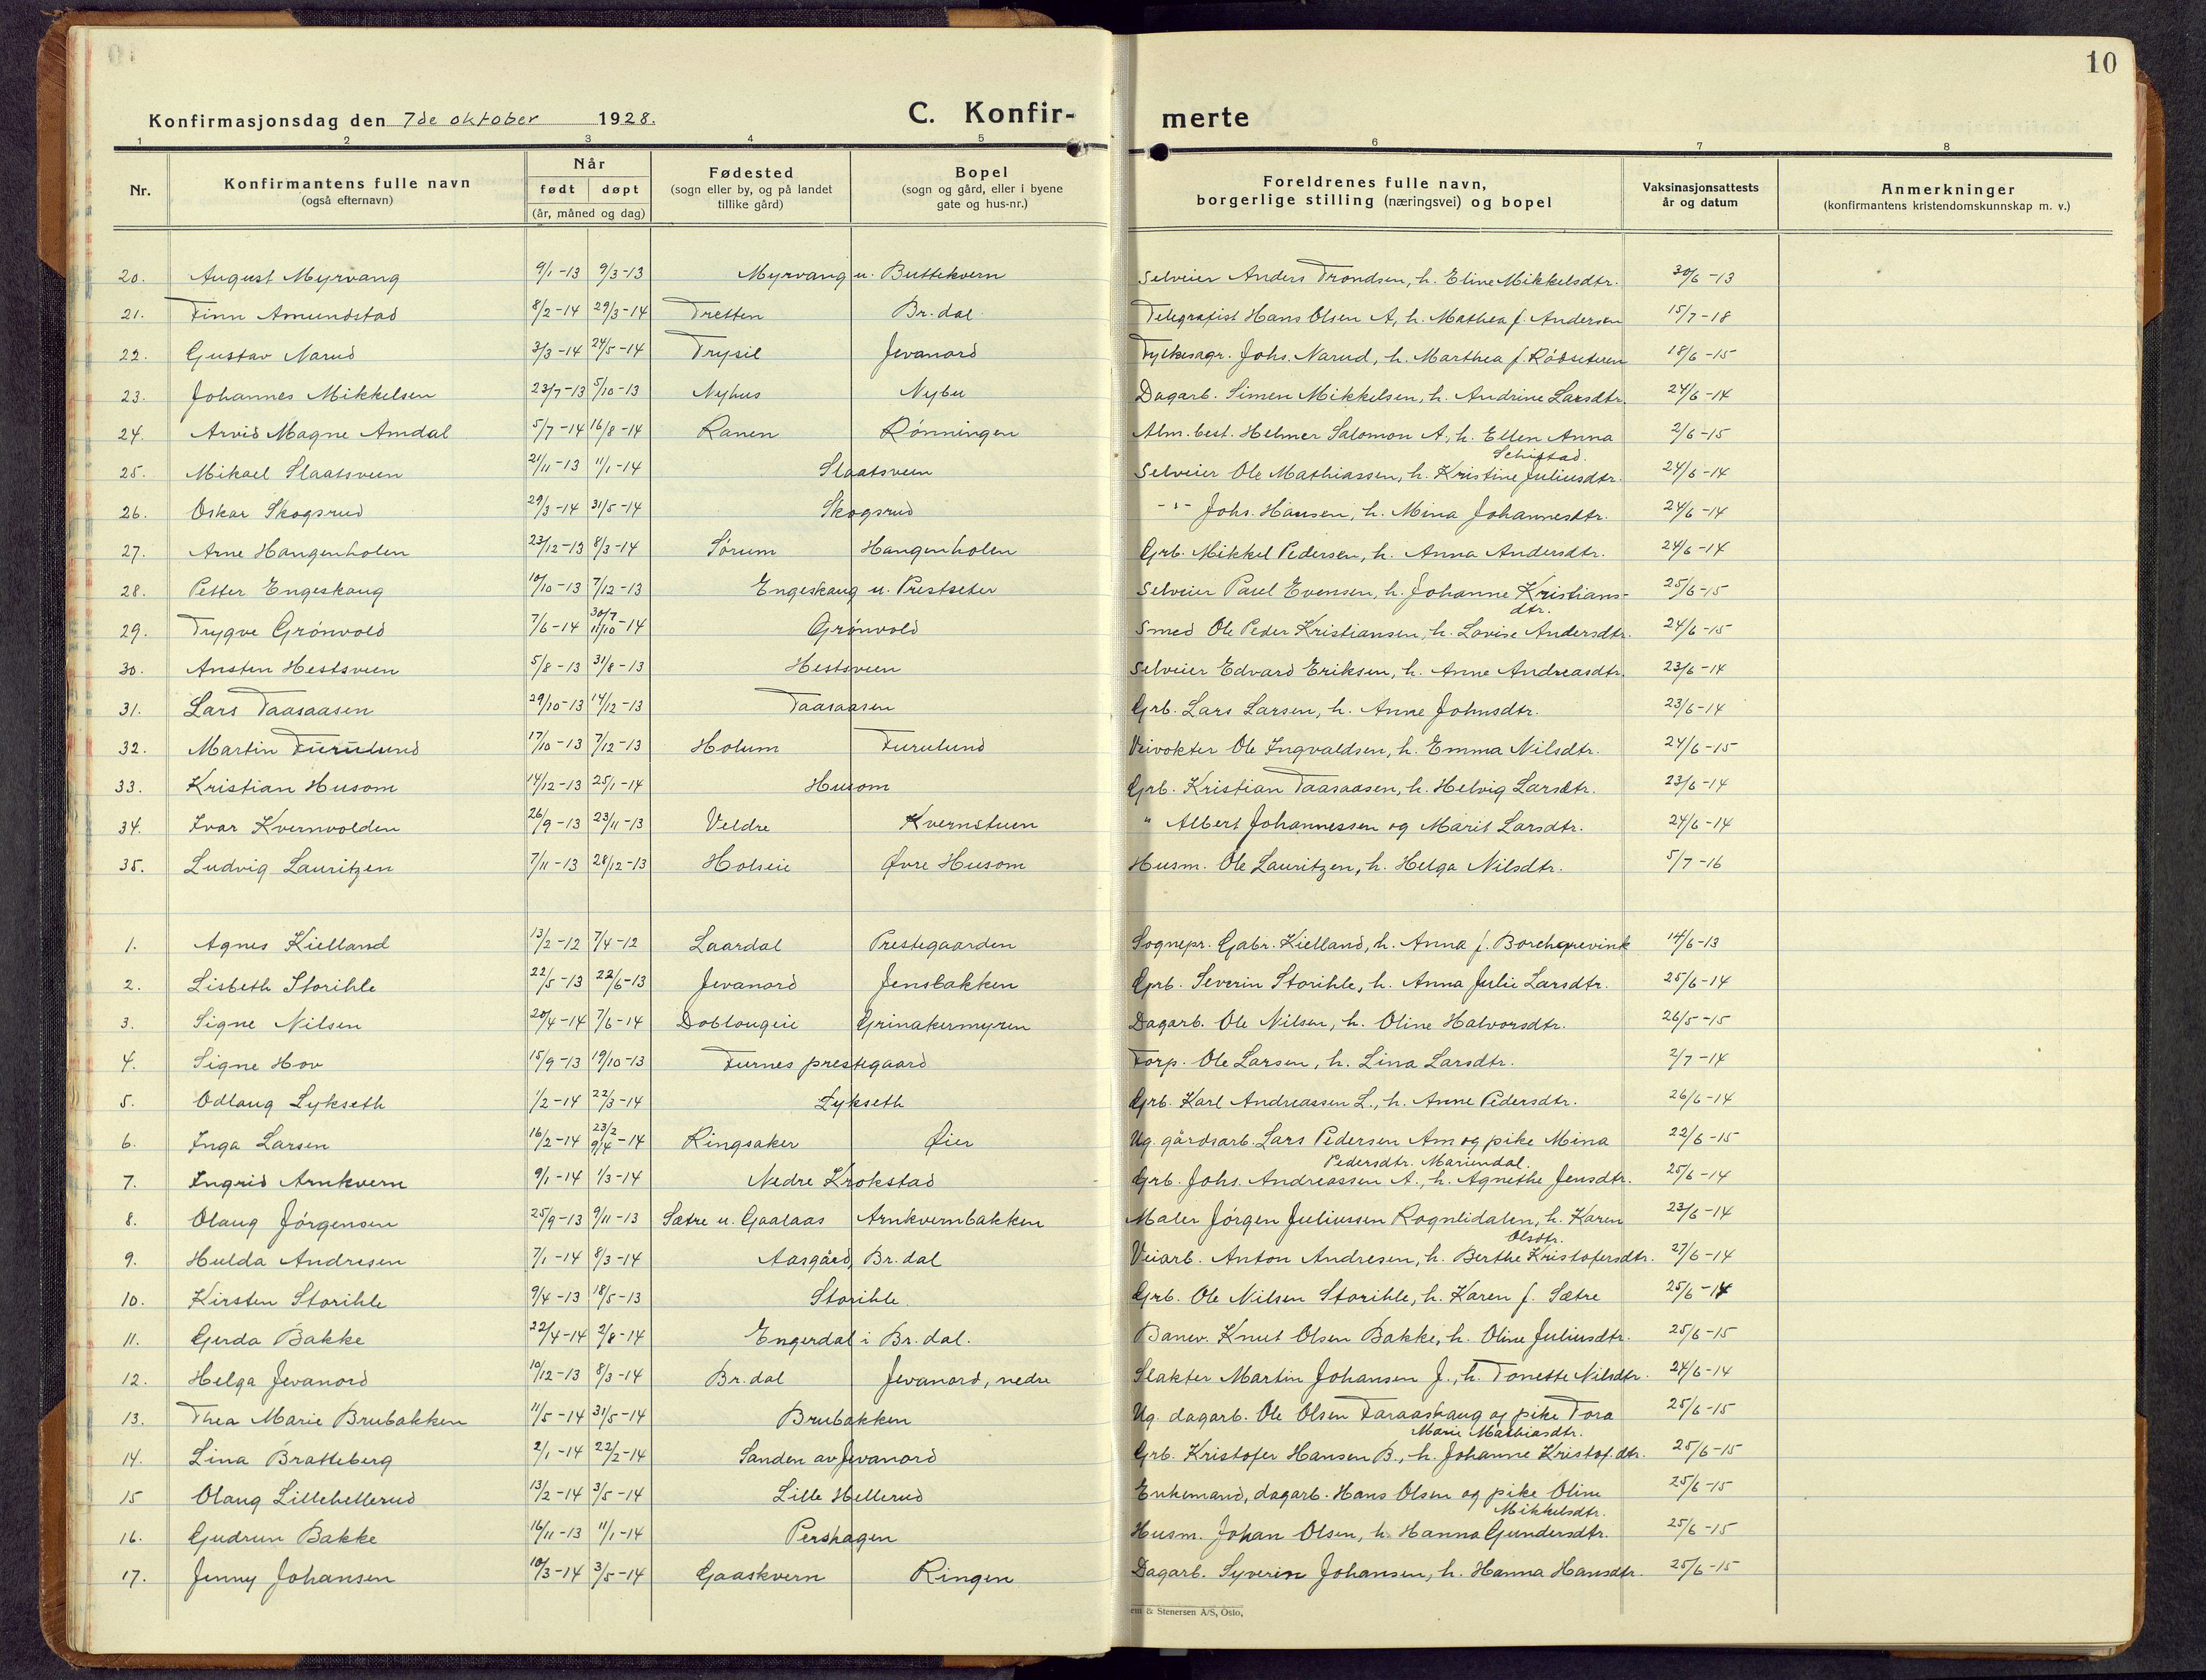 10
Konfirmasjonsdag den 7de oktober 1928. C. Konfir- merte
1 2 3 4 5 6 7 8
Nr. Konfirmantens fulle navn (også efternavn) Når født døpt (år, måned og dag) Fødested (sogn eller by, og på landet tillike gård) Bopel (sogn og gård, eller i byene gate og hus-nr.) Foreldrenes fulle navn, borgerlige stilling (næringsvei) og bopel Vaksinasjonsattests år og datum Anmerkninger (konfirmantens kristendomskunnskap m. v.)
20. August Myrvang 9/1-13 9/3-13 Myrvang u. Buttekvern Selveier Anders Trondsen, h. Eline Mikkelsdtr. 30/6-13
21. Finn Amundstad 8/2-14 29/3-14 Tretten Br.dal. Telegrafist Hans Olsen A, h. Mathea f. Andersen 15/7-18
22. Gustav Narud 3/3-14 24/5-14 Trysil Jevanord Fylkesagr. Johs. Narud, h. Marthea f. Rödseteren 18/6-15
23. Johannes Mikkelsen 23/7-13 5/10-13 Nyhus Nybu Dagarb. Simen Mikkelsen, h. Andrine Larsdtr. 24/6-14
24. Arvid Magne Amdal 5/7-14 16/8-14 Ranen Rönningen Alm. best. Helmer Salomon A., h. Ellen Anna Schistad. 2/6-15
25. Mikael Slaatsveen 21/11-13 11/1-14 Slaatsveen Selveier Ole Mathiassen, h. Kristine Juliusdtr. 24/6-14
26. Oskar Skogsrud 29/3-14 31/5-14 Skogsrud -"- Johs. Hansen, h. Mina Johannesdtr. 24/6-14
27. Arne Hangenholen 23/12-13 8/3-14 Sörum Hangenholen Grb. Mikkel Pedersen, h. Anna Andersdtr. 24/6-14
28. Petter Engeskaug 10/10-13 7/12-13 Engeskaug u. Prestseter Selveier Paul Evensen, h. Johanne Kristians-dtr. 25/6-15
29. Trygve Grönvold 7/6-14 30/7 11/10-14 Grönvold Smed Ole Peder Kristiansen, h. Lovise Andersdtr. 24/6-15
30. Ansten Hestsveen 5/8-13 31/8-13 Hestsveen Selveier Edvard Eriksen, h. Anne Andreasdtr. 23/6-14
31. Lars Taasaasen 29/10-13 14/12-13 Taasaasen Grb. Lars Larsen, h. Anne Johnsdtr. 23/6-14
32. Martin Furulund 17/10-13 7/12-13 Holum Furulund Veivokter Ole Ingvaldsen, h. Emma Nilsdtr. 24/6-15
33. Kristian Husom 14/12-13 25/1-14 Husom Grb. Kristian Taasaasen, h. Helvig Larsdtr. 23/6-14
34. Ivar Kvernvolden 26/9-13 23/11-13 Veldre Kvernstuen " Albert Johannessen og Marit Larsdtr. 24/6-14
35. Ludvig Lauritzen 7/11-13 28/12-13 Holseie Øvre Husom Husm. Ole Lauritzen, h. Helga Nilsdtr. 5/7-16
1. Agnes Kielland 13/2-12 7/4-12 Laardal Prestegaarden Sognepr. Gabr. Kielland, h. Anna f. Borchgrevink 14/6-13
2. Lisbeth Storihle 22/5-13 22/6-13 Jevanord Jensbakken Grb. Severin Storihle, h. Anna Julie Larsdtr. 25/6-14
3. Signe Nilsen 20/4-14 7/6-14 Doblougeie Grinakermyren Dagarb. Ole Nilsen, h. Oline Halvorsdtr. 26/5-15
4. Signe Hov 15/9-13 19/10-13 Furnes prestegaard Forp. Ole Larsen, h. Lina Larsdtr. 2/7-14
5. Odlaug Lykseth 1/2-14 22/3-14 Lykseth Grb. Karl Andreassen L., h. Anne Pedersdtr. 26/6-14
6. Inga Larsen 16/2-14 23/2 9/4-14 Ringsaker Øier Ug. gårdsarb. Lars Pedersen Am og pike Mina Pedersdtr. Mariendal. 22/6-15
7. Ingrid Arnkvern 9/1-14 1/3-14 Nedre Krokstad Grb. Johs. Andreassen A., h. Agnethe Jensdtr. 25/6-14
8. Olaug Jörgensen 25/9-13 9/11-13 Sætre u. Gaalaas Arnkvernbakken Maler Jörgen Juliussen Rognlidalen, h. Karen Olsdtr. 23/6-14
9. Hulda Andresen 7/1-14 8/3-14 Aasgård, Br.dal Veiarb. Anton Andresen, h. Berthe Kristofersdtr. 27/6-14
10. Kirsten Storihle 9/4-13 18/5-13 Storihle. Grb. Ole Nilsen Storihle, h. Karen f. Sætre 25/6-14
11. Gerda Bakke 22/4-14 2/8-14 Engerdal i Br.dal. Banev. Knut Olsen Bakke, h. Oline Juliusdtr. 25/6-15
12. Helga Jevanord 10/12-13 8/3-14 Br.dal Jevanord, nedre Slakter Martin Johansen J., h. Tonette Nilsdtr. 24/6-14
13. Thea Marie Brubakken 11/5-14 31/5-14 Brubakken Ug. dagarb. Ole Olsen Faraaskaug og pike Tora Marie Mathiasdtr. 25/6-15
14. Lina Bratteberg 2/1-14 22/2-14 Sanden av Jevanord Grb. Kristofer Hansen B., h. Johanne Kristof.dtr. 25/6-15
15 Olaug Lillehellerud 13/2-14 3/5-14 Lille Hellerud Enkemand, dagarb. Hans Olsen og pike Oline Mikkelsdtr. 25/6-15
16. Gudrun Bakke 16/11-13 11/1-14 Pershagen Husm. Johan Olsen, h. Hanna Gundersdtr. 25/6-15
17. Jenny Johansen 10/3-14 3/5-14 Gaaskvern Ringen Dagarb. Syverin Johansen, h. Hanna Hansdtr. 25/6-15
& Stenersen A/S, Oslo,